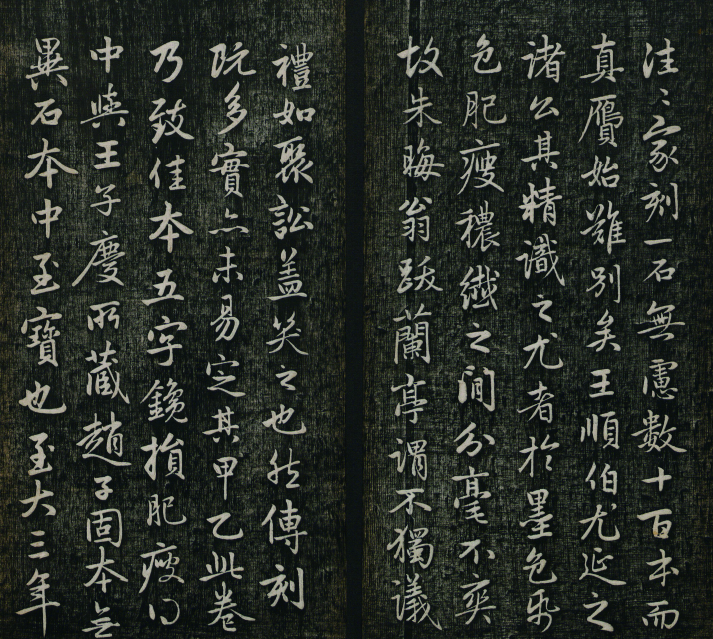 往〻家刻一石無慮數十百本而
真贋始難別矣王順伯尤延之
諸公其精識之尤者於墨色紙
色肥瘦穠纖之間分毫不爽
故朱晦翁跋蘭亭謂不獨議
禮如聚訟盖笑之也然傳刻
既多實亦未易定其甲乙此卷
乃致佳本五字鑱損肥瘦得
中與王子慶所藏趙子固本無
異石本中至寶也至大三年